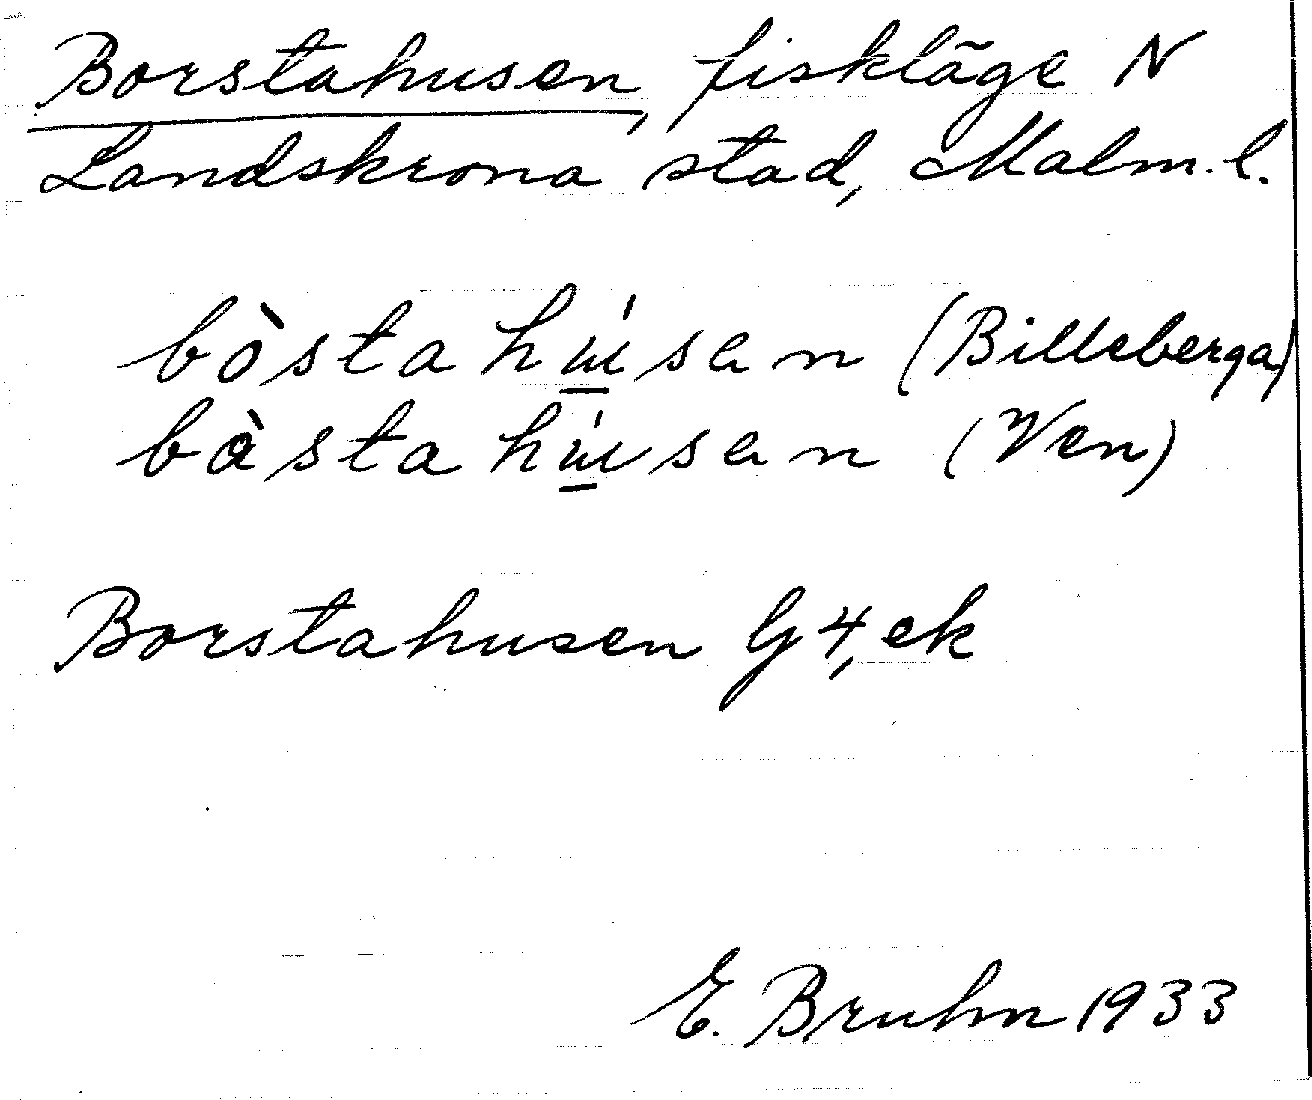 Borstahusen, fiskläge N
Landskrona stad, Malm. l.
bòstahú̲san (Billeberga)
bàstahú̲san (Ven)
Borstahusen G4, ek
E. Bruhn 1933